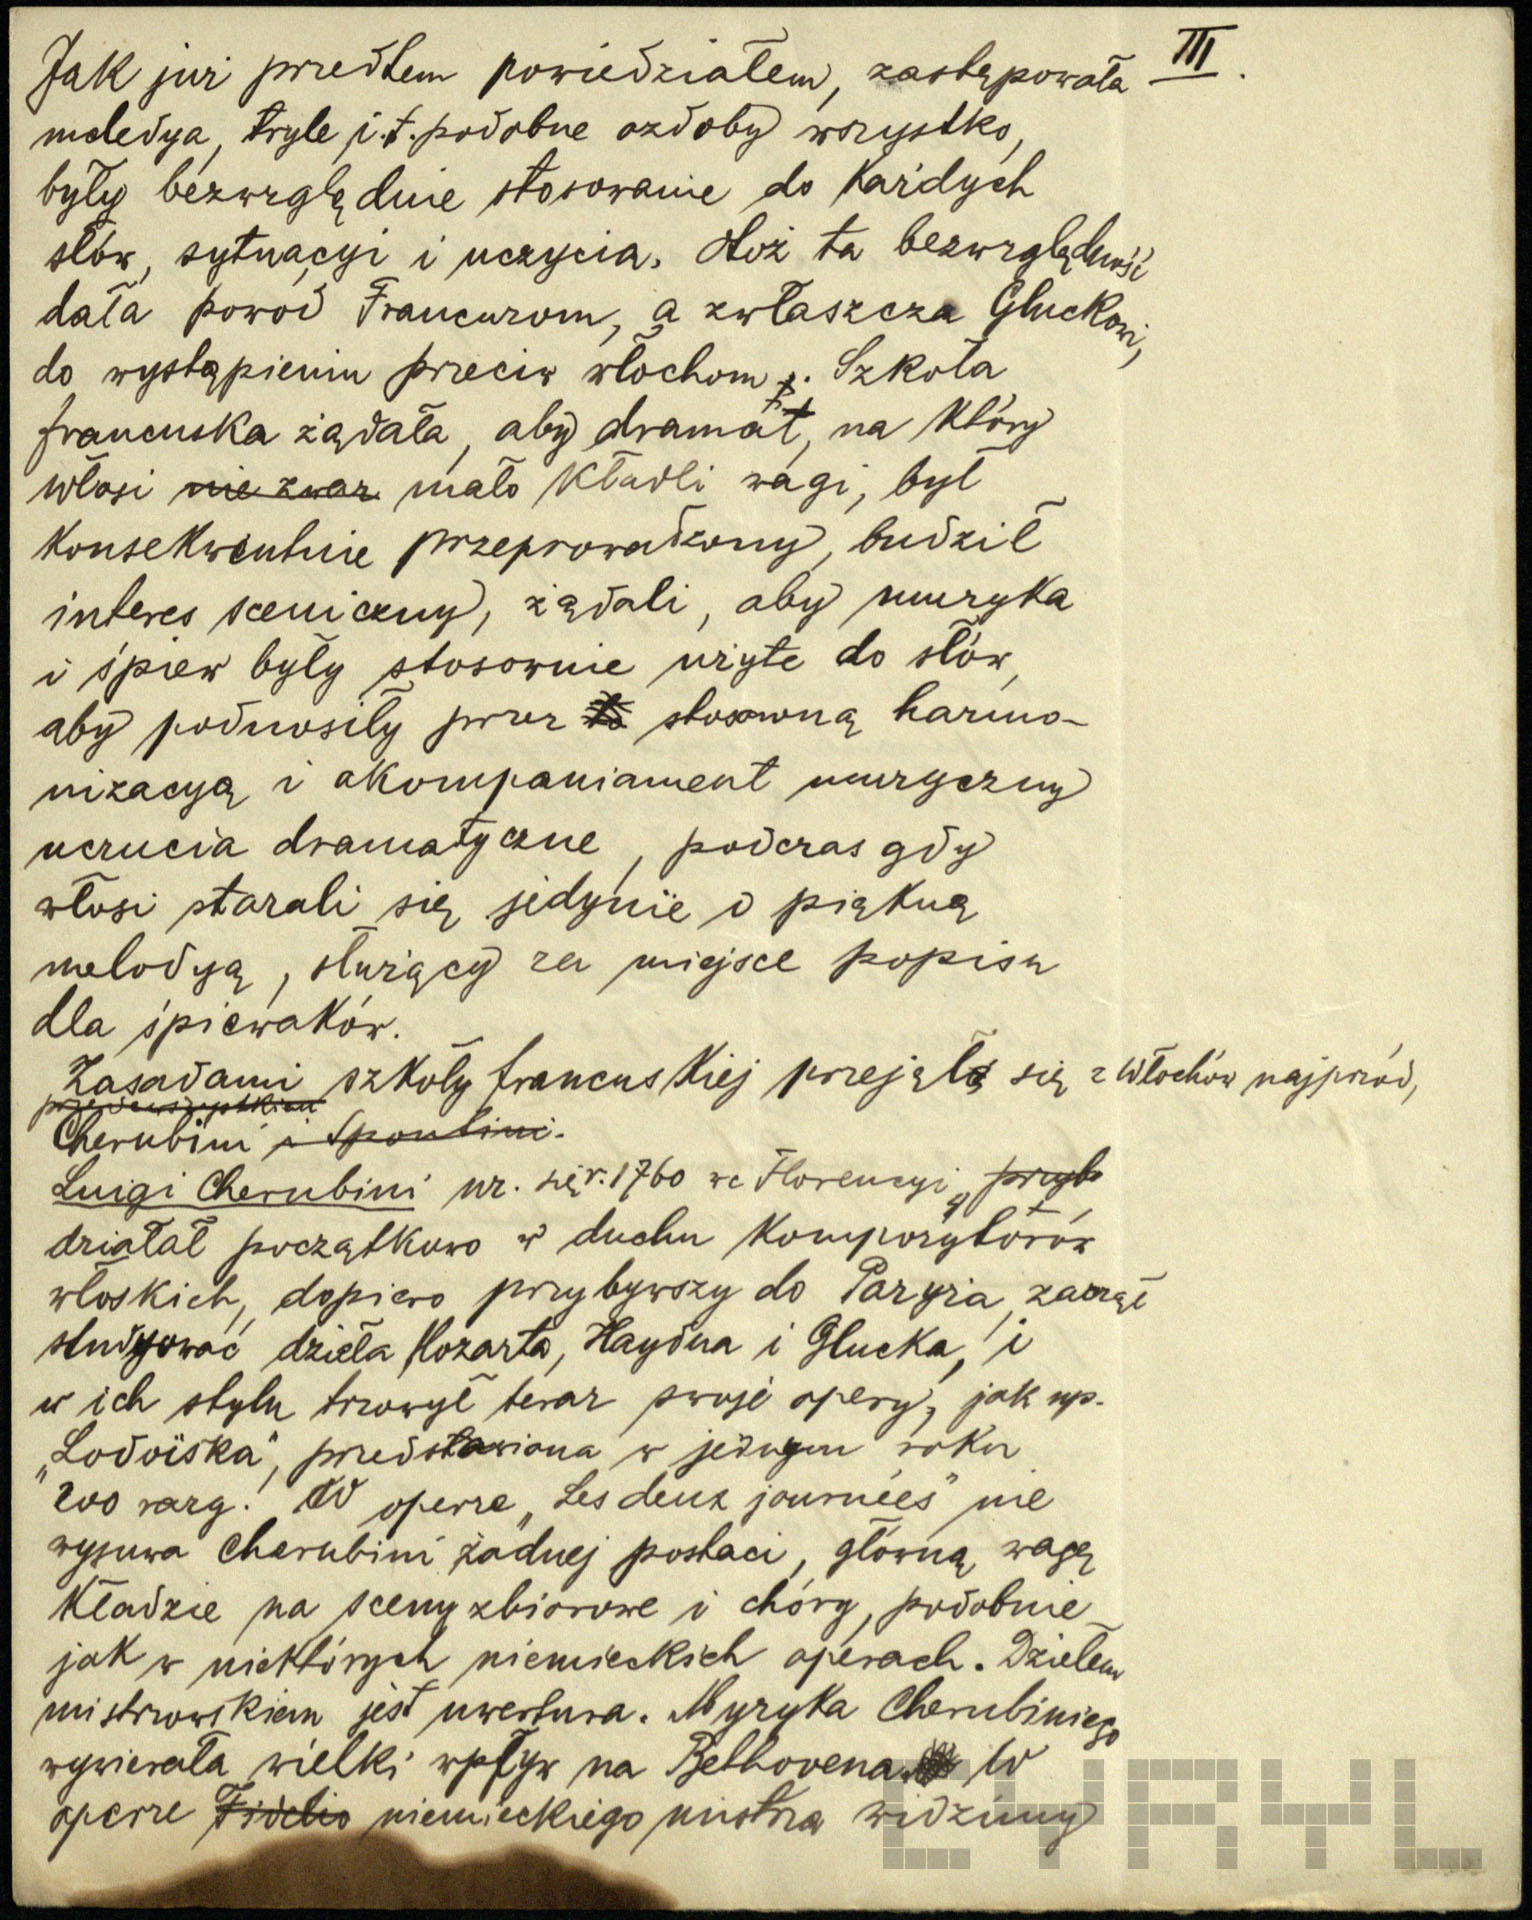 III.
Jak już przedtem powiedziałem, zastępowała
melodya, tryle i.t.podobne ozdoby wszystko,
były bezwzględnie stosowanie do każdych
słów, sytuacyi i uczycia. Otóż ta bezwzględność
dała powód Francuzom, a zwłaszcza Gluckowi,
do wystąpieniu przeciw włochom. Szkoła
francuska żądała, aby dramat, na który
włosi nie zwar mało kładli wagi, był
konsekwentnie przeprowadzony, budził
interes sceniczny, żądali, aby muzyka
i śpiew były stosownie użyte do słów,
aby podnosiły przez to stosowną harmo-
nizacyą i akompaniament muzyczny
uczucia dramatyczne, podczas gdy
włosi starali się jedynie o piękną
melodyą, służący za miejsce popisu
dla śpiewaków.
Zasadami szkoły francuskiej przejął się z Włochów najprzód,
przedewszystkiem
Cherubini i Spontini.
Luigi Cherubini ur. się r. 1760 we Florencyi, przyb
działał początkowo w duchu kompozytorów
włoskich, dopiero przybywszy do Paryża, zaczął
studyować dzieła Mozarta, Haydna i Glucka, i
w ich stylu tworzył teraz swoje opery, jak np.
„Lodoïska", przedstawiona w jednym roku
200 razy! W operze „Les deux journées" nie
wysuwa Cherubini żadnej postaci, główną wagę
kładzie na sceny zbiorowe i chóry, podobnie
jak w niektórych niemieckich operach. Dziełem
mistrzowskiem jest uwertura. Muzyka Cherubiniego
wywierała wielki wpływ na Bethovena. W
operze Fidelio niemieckiego mistrza widzimy
CYRYL